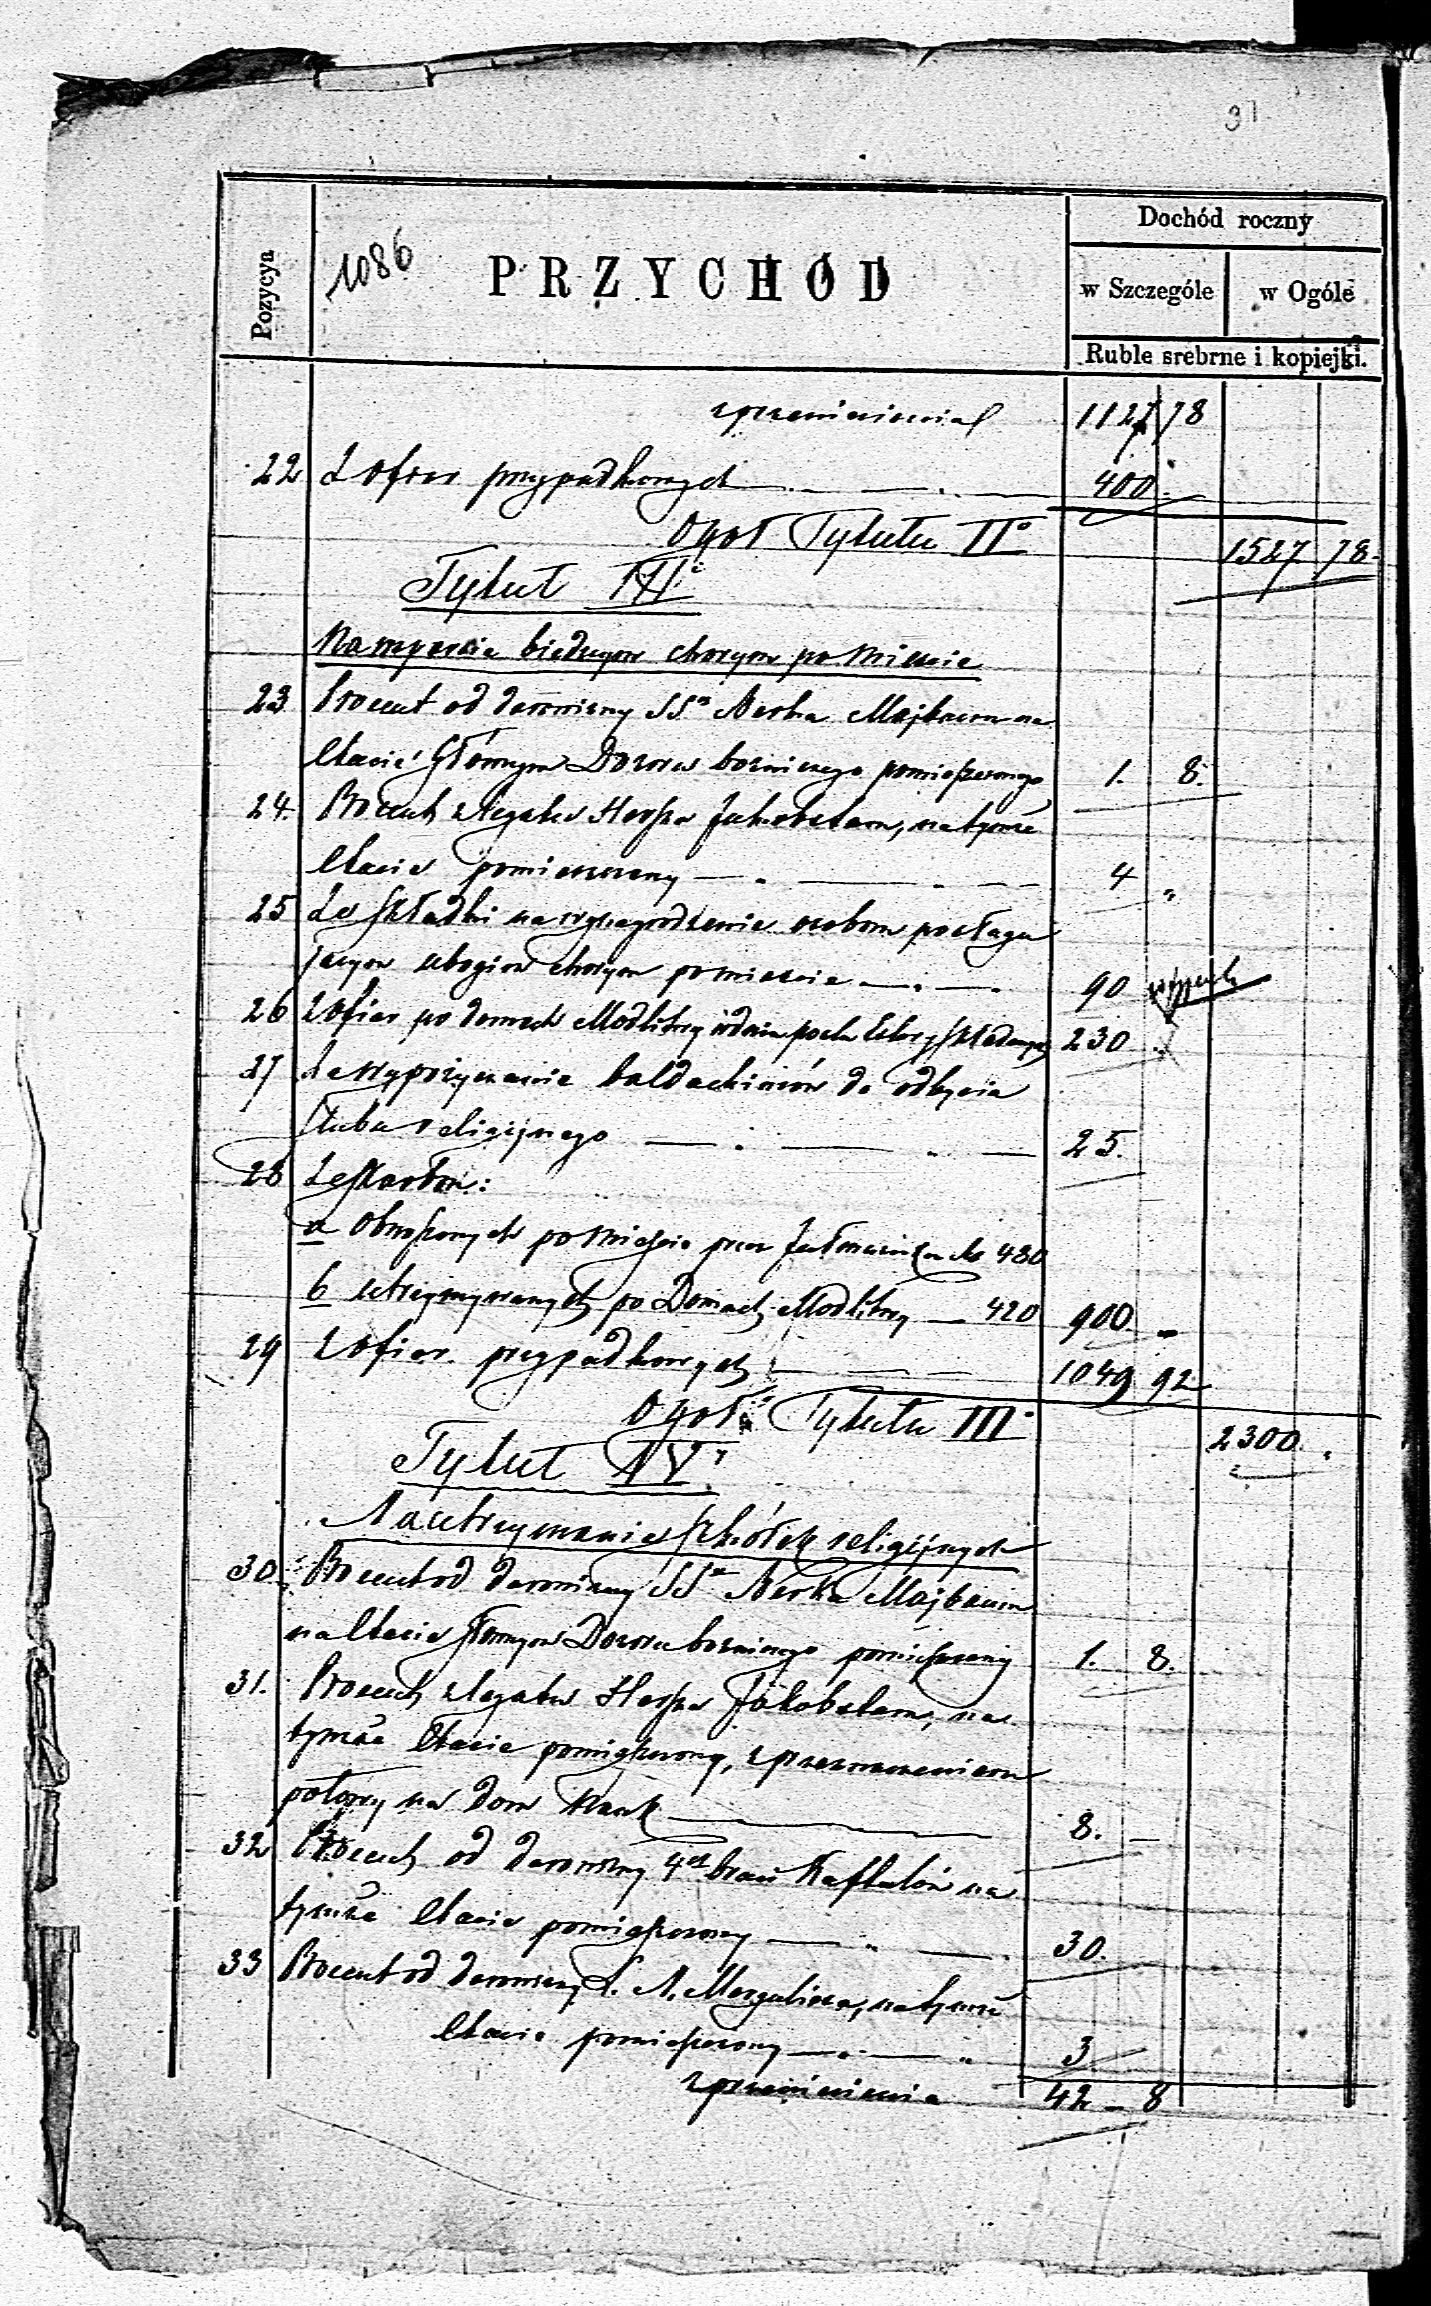 31
Pozycya
1086
PRZYCHÓD
Dochód roczny
w Szczególe
w Ogóle
Ruble srebrne i kopiejki.
z przeniesienia 1127 78
22 Z ofiar przypadkowych 400
Ogół Tytułu II° 1527 78
Tytuł III
Na wsparcie biednym chorym po Mieście
23 Procent od darowizny SSra Berka Majbaum na
Etacie Głównym Dozoru bożniczego pomieszczonego 1. 8.
24. Procent z Legatu Hersza Jakubatam, na tymże
Etacie pomieszczony 4 "
25 Ze składki na wynagrodzenie osobom posługu
jącym ubogim chorym po mieście 90
26 Z ofiar po domach Modlitwy 230
27 Za wypożyczanie baldachimów do odbycia
ślubu religijnego 25.
28 Ze skarbon:
a obnoszonych po Mieście przez Jałmużnika Rs 480
b utrzymywanych po Domach Modlitwy 420 900
29 Z ofiar przypadkowych 1049 92
Ogół Tytułu III° 2300
Tytuł IV
Na utrzymanie szkółek religijnych
30. Procent od darowizny SSra Berka Majbaum
na Etacie Głównym Dozoru bożniczego pomieszczony 1. 8.
31. Procent z Legatu Hersza Jakubatam, na
tymże Etacie pomieszczony, z przeznaczeniem
połowy na dom Nauk 8. —
32 Procent od darowizny 4ch braci na
tymże Etacie pomieszczony 30.
33 Procent od darowizny L. A. Margulies, na tymże
Etacie pomieszczony 3
z przeniesienia 42 - 8